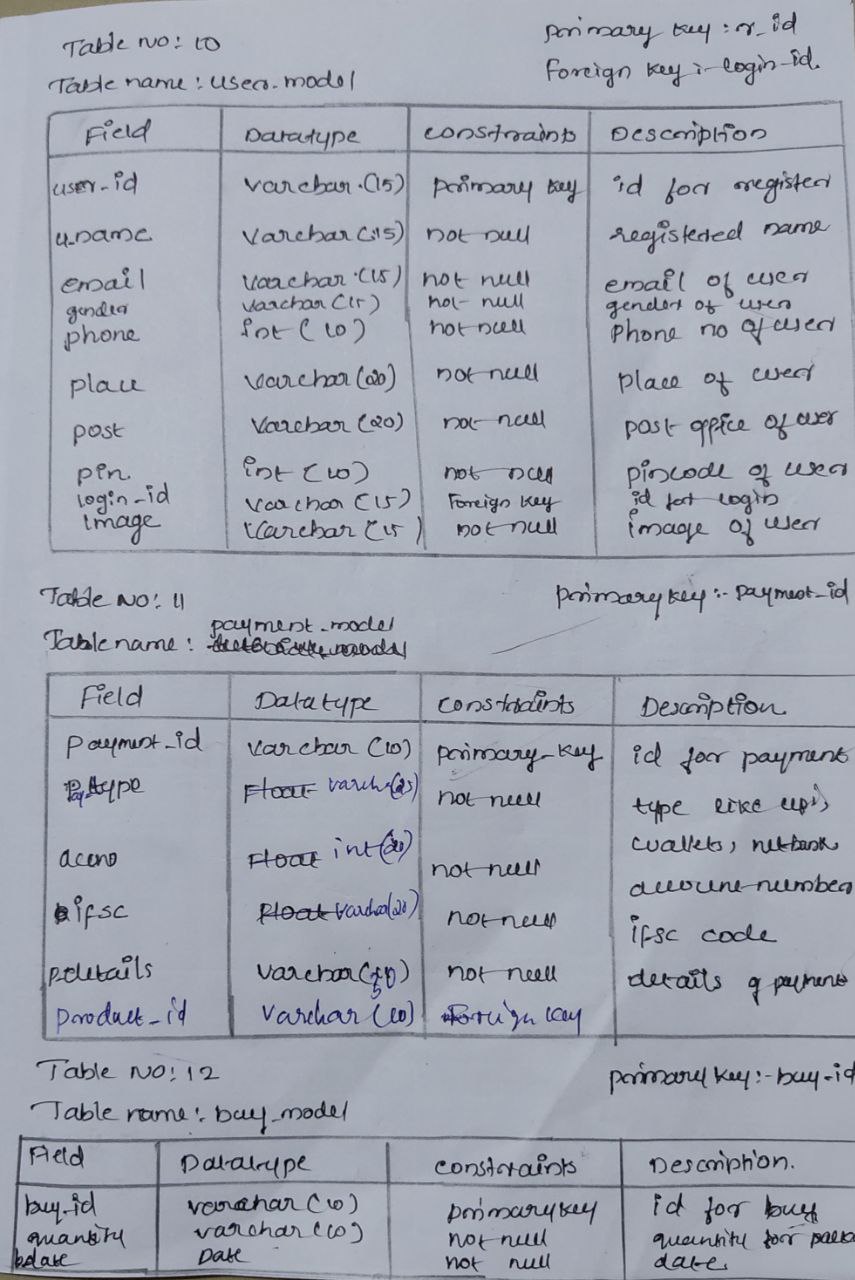 Table No: 10
primary key : r_id
Foreign key :- login_id.
Table name : user_model
Field Datatype constraints Description
user_id varchar (15) primary key id for register
u_name varchar (15) not null registered name
email varchar (15) not null email of user
gender varchar (15) not null gender of user
phone int (10) not null phone no of user
place varchar (20) not null place of user
post varchar (20) not null post office of user
pin int (10) not null pincode of user
login_id varchar (15) Foreign key id for login
image varchar (15) not null image of user
Table No: 11
primary key :- payment_id
payment_model
Table name :
Field Datatype constraints Description
payment_id varchar (10) primary_key id for payment
Pay_type Float varchar(25) not null type like upi,
wallets, netbank
accno Float int(20) not null
account number
ifsc Float varchar(20) not null ifsc code
p_details varchar (50) not null details of payment
product_id varchar (10) Foreign key
Table No: 12
primary key :- buy_id
Table name : buy_model
Field Datatype constraints Description.
buy_id varchar (10) primary key id for buy
quantity varchar (10) not null quantity for
bdate Date not null date